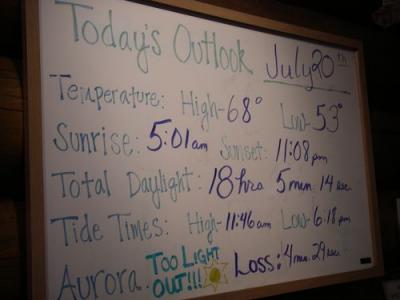 Today's Outlook July 20th
Temperature: High-68° Low-53°
Sunrise: 5:01am Sunset: 11:08pm
Total Daylight: 18hrs 5min 14sec
Tide Times: High-11:46am Low-6:18pm
Aurora: TOO LIGHT OUT!!! Loss: 4min 29sec